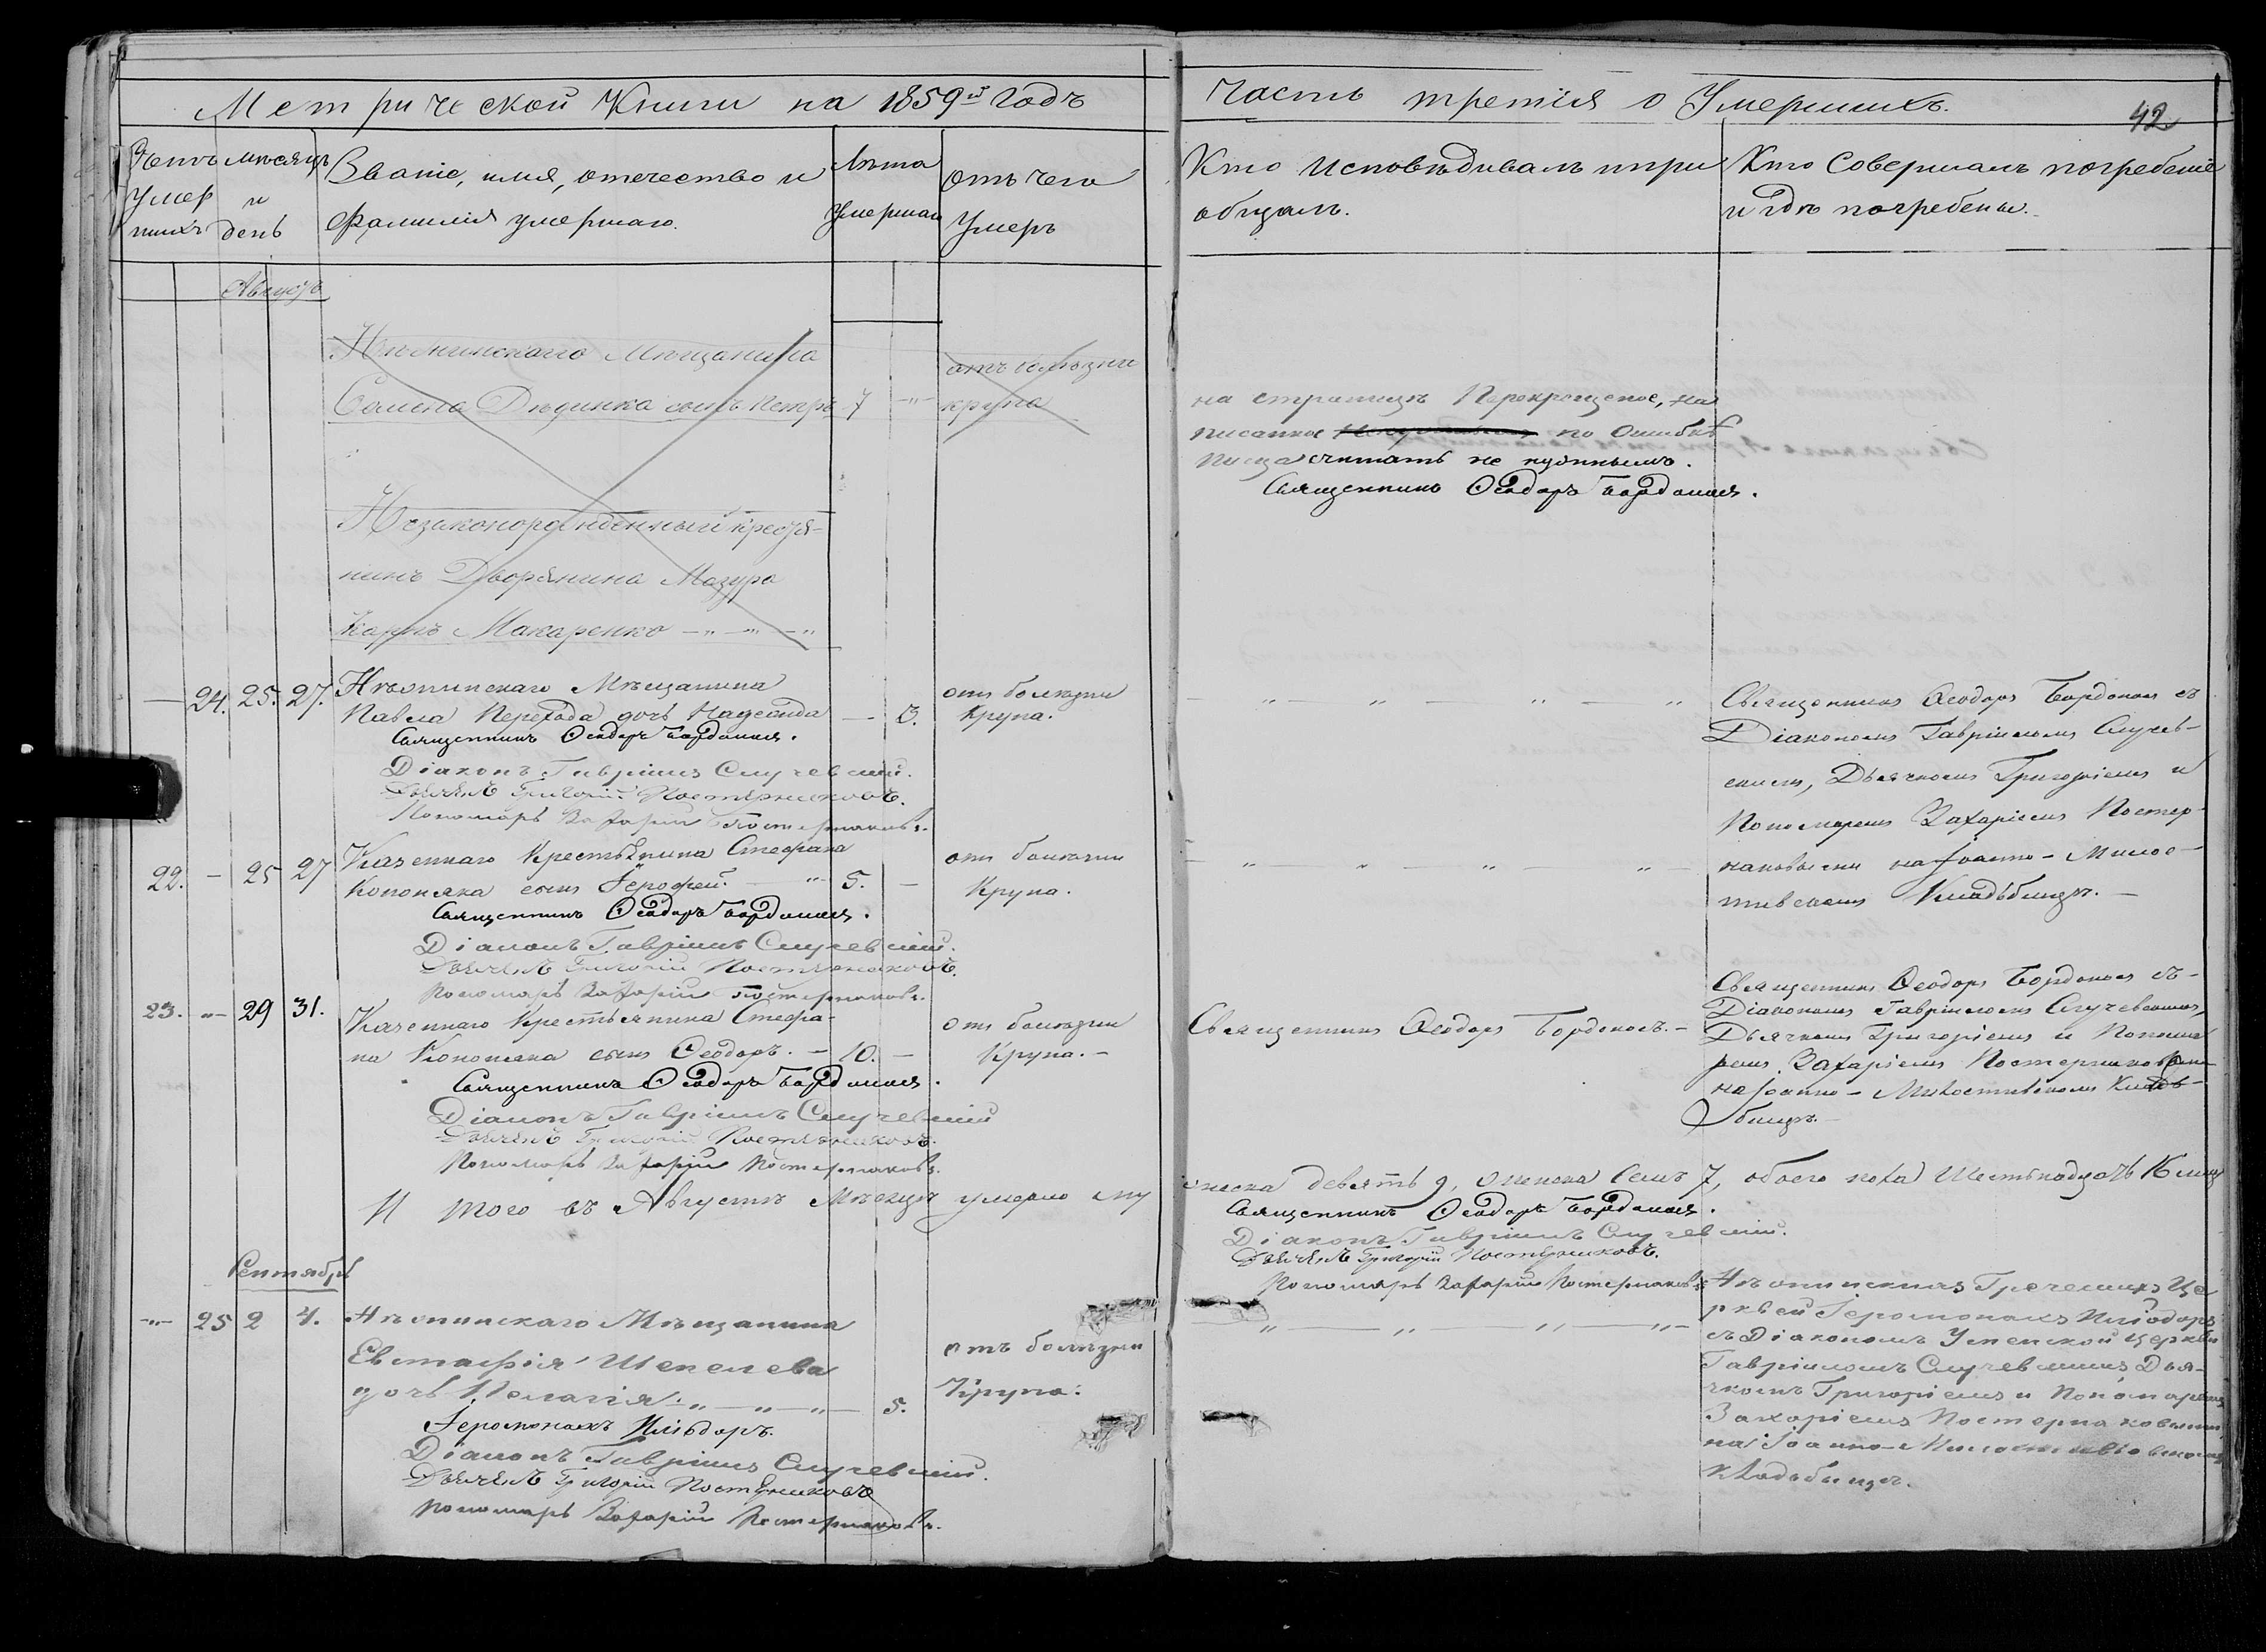 Метрической Книги на 1859й Годъ
Часть третія о Умершихъ.
42
Счетъ умершихъ
Мѣсяцъ и день
Званіе, имя, отечество и
фамилія умершаго.
Лѣта
Умершаго
Отъ чего
Умеръ
Кто Исповѣдивалъ и при
общалъ.
Кто Совершалъ погребеніе
и гдѣ погребены.
Августъ
Нѣжинскаго Мѣщанина
Семена Дѣдинка сынъ Петръ 7 -„-
отъ болѣзни
крупа
на страницѣ Перекрещеное, на
писанное по Ошибкѣ
писца считать не нужнымъ.
Священникъ Ѳеодоръ Бордоносъ.
Незаконорожденный крестья-
нинъ Дворянина Мазура
Карпъ Макаренко -„-„-„
— 24. 25. 27.
Нѣжинскаго Мѣщанина
Павла Перехода дочь Надежда — 3.
отъ болѣзни
Крупа.
Священникъ Ѳеодоръ Бордоносъ.
Діаконъ Гавріилъ Случевскій.
Дьячекъ Григорій Постернаковъ.
Пономарь Захарій Постернаковъ.
Священникъ Ѳеодоръ Бордоносъ съ
Діакономъ Гавріиломъ Случев-
скимъ, Дьячкомъ Григоріемъ и
Пономаремъ Захаріемъ Постер-
наковыми на Іоанно-Милос-
тивскомъ Кладьбищѣ.—
22. — 25 27
Казеннаго Крестьянина Стефана
Кононяка сынъ Іерофей. —„ 5. —
отъ болѣзни
Крупа.
Священникъ Ѳеодоръ Бордоносъ.
Діаконъ Гавріилъ Случевскій.
Дьячекъ Григорій Постернаковъ.
Пономарь Захарій Постернаковъ.
23. -„- 29 31.
Казеннаго Крестьянина Стефа-
на Кононяка сынъ Ѳеодоръ. — 10. —
отъ болѣзни
Крупа.—
Священникъ Ѳеодоръ Бордоносъ.—
Священникъ Ѳеодоръ Бордоносъ съ-
Діакономъ Гавріиломъ Случевскимъ,
Дьячкомъ Григоріемъ и Понома
ремъ Захаріемъ Постернаковыми
на Іоанно-Милостивскомъ Кладь-
бищѣ.—
Священникъ Ѳеодоръ Бордоносъ.
Діаконъ Гавріилъ Случевскій
Дьячекъ Григорій Постернаковъ.
Пономарь Захарій Постернаковъ.
И того въ Августѣ Мѣсяцѣ умерло му
жеска девять 9, оженска Семъ 7, обоего пола Шестьнадцать 16 лицъ
Священникъ Ѳеодоръ Бордоносъ.
Діаконъ Гавріилъ Случевскій.
Дьячекъ Григорій Постернаковъ.
Пономарь Захарій Постернаковъ.
Сентябрь
-„- 25 2 4.
Нѣжинскаго Мѣщанина
Евстафія Шепелева
дочь Пелагія. „—„—„— 5.
отъ болѣзни
Крупа.
Іеромонахъ Иліодоръ.
Діаконъ Гавріилъ Случевскій.
Дьячекъ Григорій Постернаковъ
Пономарь Захарій Постернаковъ.
Нѣжинскихъ Греческихъ Це
рквей Іеромонахъ Иліодоръ
съ Діакономъ Успенской церкви
Гавріиломъ Случевскимъ Дья-
чкомъ Григоріемъ и Пономаремъ
Захаріемъ Постернаковыми
на Іоанно-Милостивовскомъ
кладьбищѣ.